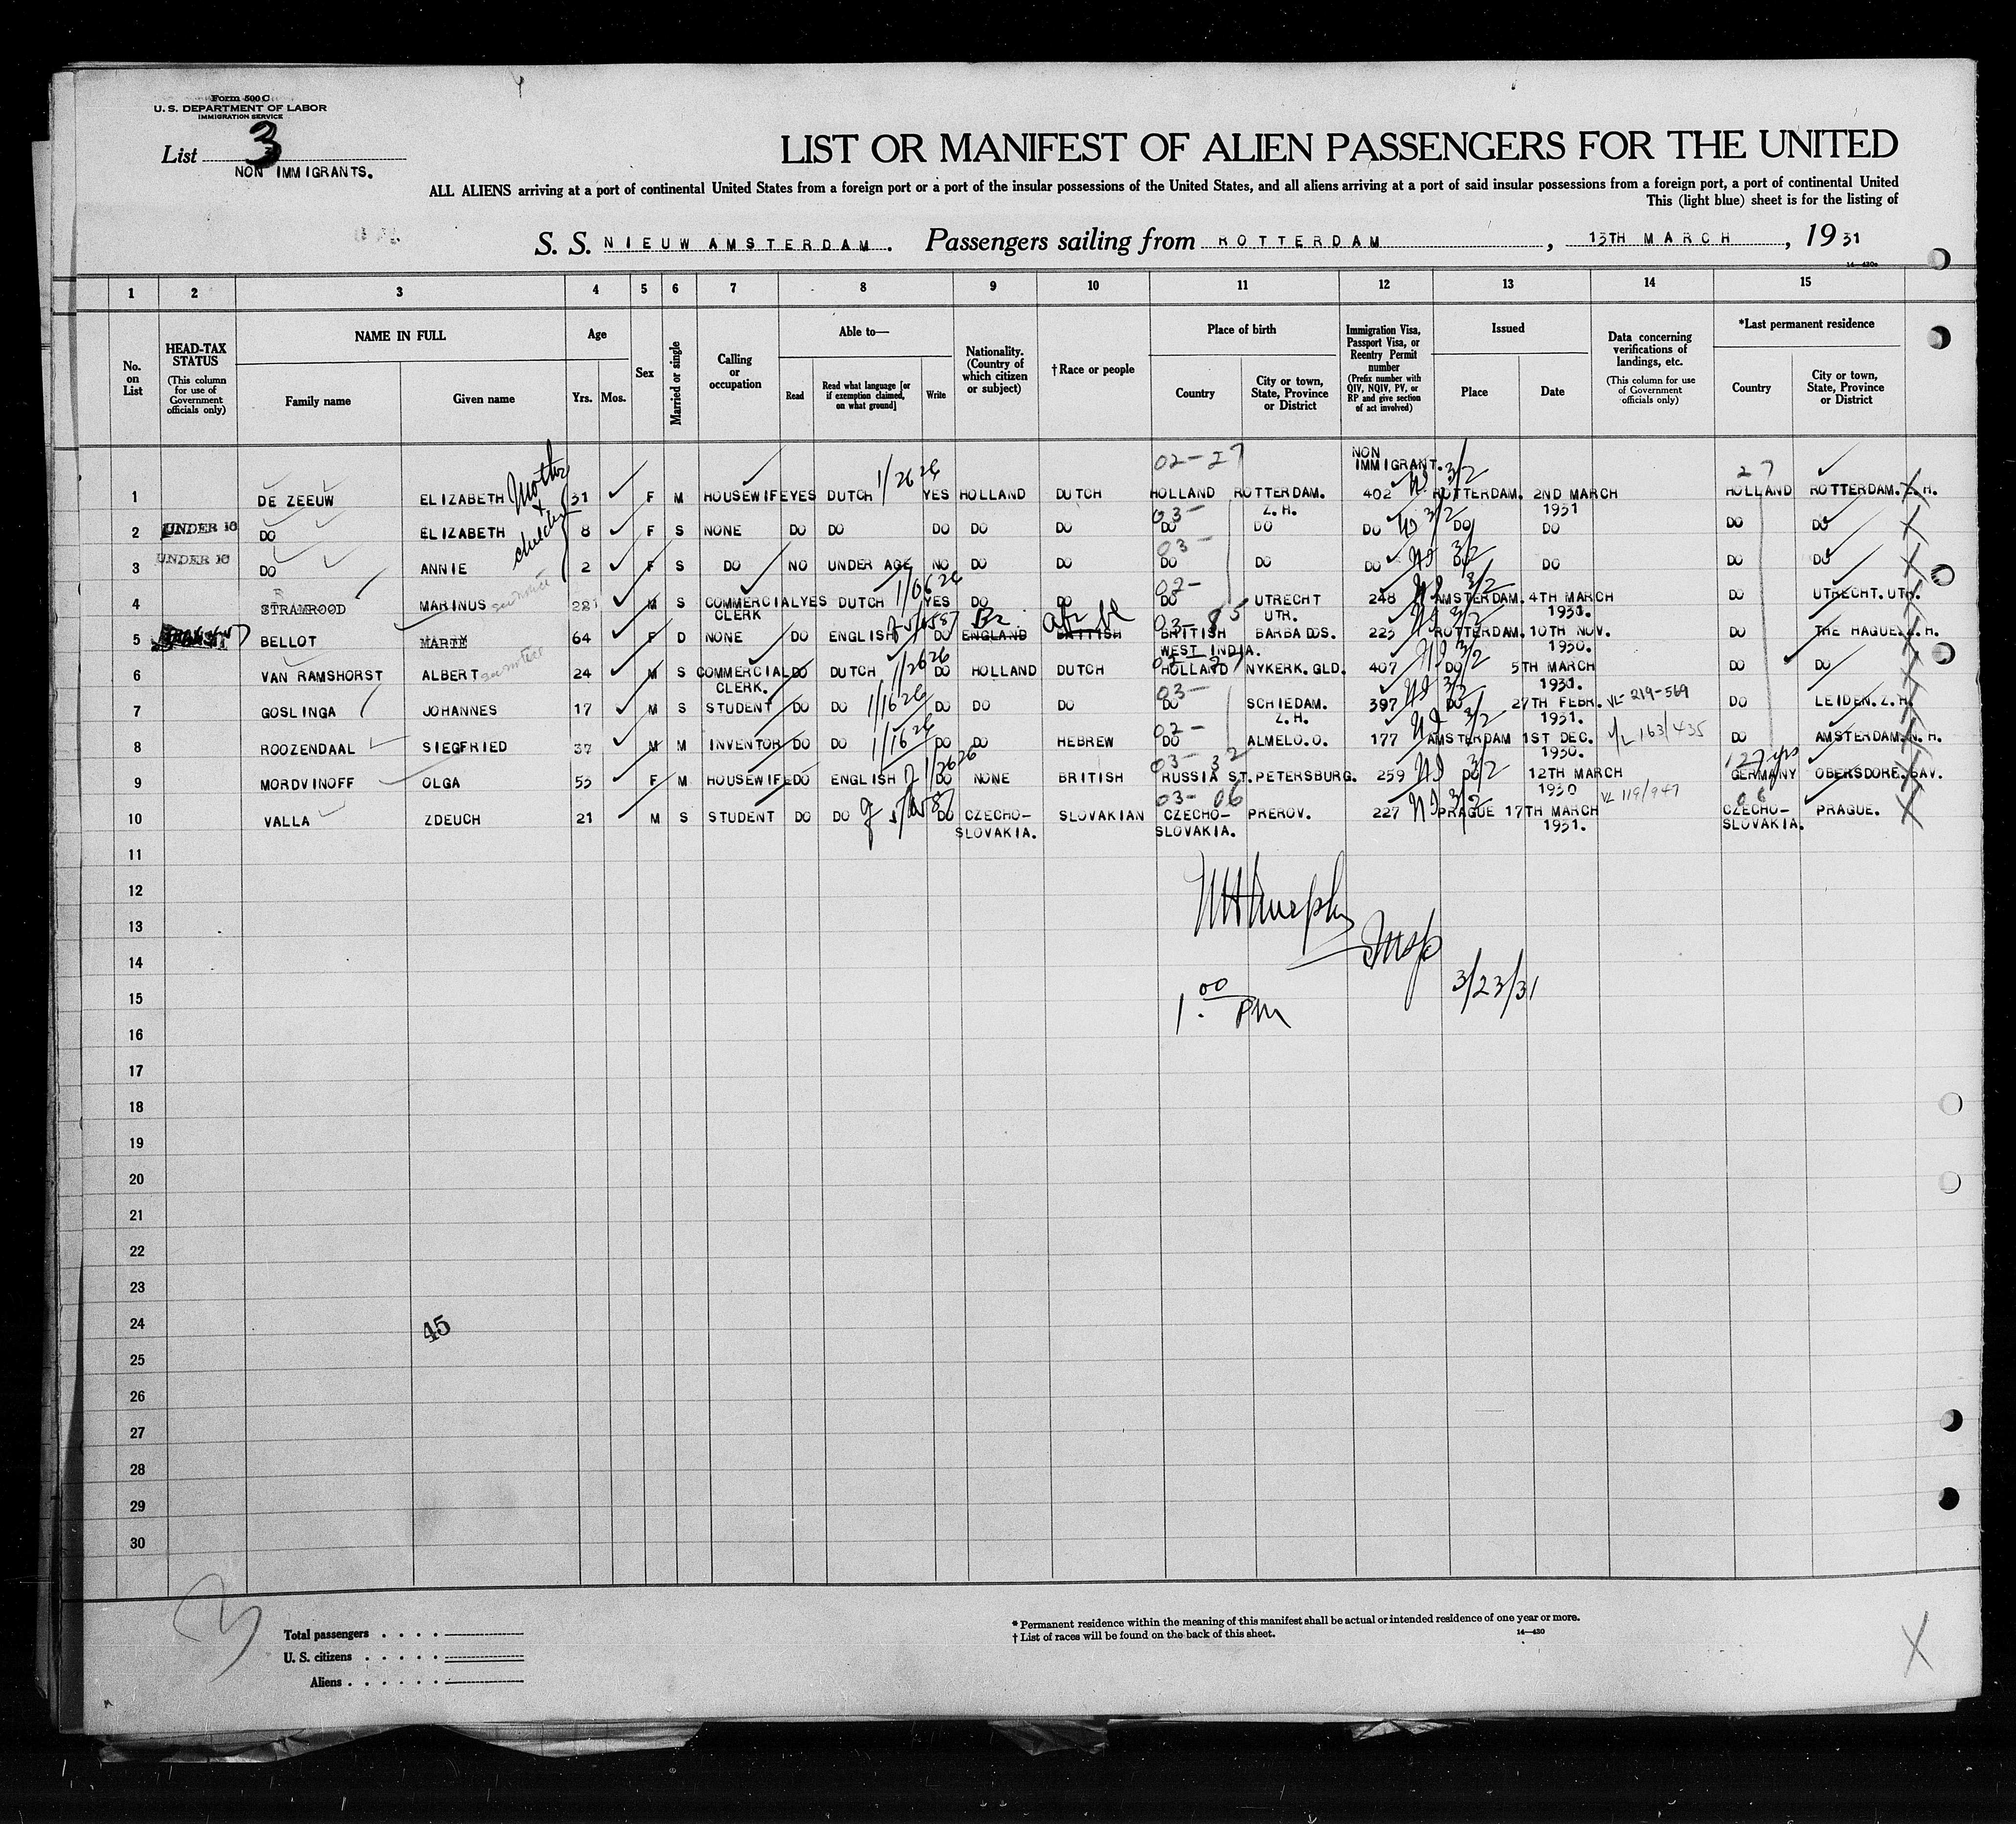 Form 500 C
U. S. DEPARTMENT OF LABOR
IMMIGRATION SERVICE
List 3
NON IMMIGRANTS.
LIST OR MANIFEST OF ALIEN PASSENGERS FOR THE UNITED
ALL ALIENS arriving at a port of continental United States from a foreign port or a port of the insular possessions of the United States, and all aliens arriving at a port of said insular possessions from a foreign port, a port of continental United
This (light blue) sheet is for the listing of
S. S. NIEUW AMSTERDAM. Passengers sailing from ROTTERDAM, 13TH MARCH, 1931
14—430c
1 2 3 4 5 6 7 8 9 10 11 12 13 14 15
No. on List
HEAD-TAX STATUS
(This column for use of Government officials only)
NAME IN FULL
Family name
Given name
Age
Yrs. Mos.
Sex
Married or single
Calling or occupation
Able to—
Read
Read what language [or if exemption claimed, on what ground]
Write
Nationality. (Country of which citizen or subject)
†Race or people
Place of birth
Country
City or town, State, Province or District
Immigration Visa, Passport Visa, or Reentry Permit number
(Prefix number with QIV, NQIV, PV, or RP and give section of act involved)
Issued
Place
Date
Data concerning verifications of landings, etc.
(This column for use of Government officials only)
*Last permanent residence
Country
City or town, State, Province or District
02-27 NON IMMIGRANT. 3/2 27
1 DE ZEEUW ELIZABETH Mother 31 F M HOUSEWIFE YES DUTCH 1/26 26 YES HOLLAND DUTCH HOLLAND ROTTERDAM. Z.H. 402 ROTTERDAM. 2ND MARCH 1931 HOLLAND ROTTERDAM. Z.H.
2 UNDER 16 DO ELIZABETH 8 F S NONE DO DO DO DO DO 03- DO DO DO 3/2 DO DO DO DO
3 UNDER 16 DO ANNIE 2 F S DO NO UNDER AGE NO DO DO 03- DO DO DO 3/2 DO DO DO DO
4 STRAMROOD MARINUS 28 M S COMMERCIAL CLERK YES DUTCH 1/06 26 YES DO DO 02- DO UTRECHT UTR. 248 3/2 AMSTERDAM. 4TH MARCH 1931. DO UTRECHT. UTR.
5 BELLOT MARIE 64 F D NONE DO ENGLISH DO ENGLAND Br BRITISH 03-85 BRITISH WEST INDIA. BARBADOS. 223 3/2 ROTTERDAM. 10TH NOV. 1930. DO THE HAGUE. Z.H.
6 VAN RAMSHORST ALBERT 24 M S COMMERCIAL CLERK. DO DUTCH 1/26 26 DO HOLLAND DUTCH HOLLAND NYKERK. GLD. 407 3/2 DO 5TH MARCH 1931. DO DO
7 GOSLINGA JOHANNES 17 M S STUDENT DO DO 1/16 26 DO DO DO 03- DO SCHIEDAM. Z.H. 397 3/2 DO 27TH FEBR. 1931. VL-219-569 DO LEIDEN. Z.H.
8 ROOZENDAAL SIEGFRIED 37 M M INVENTOR DO DO 1/16 26 DO DO HEBREW 02- DO ALMELO.O. 177 3/2 AMSTERDAM 1ST DEC. 1930. VL 163/435 DO AMSTERDAM. N.H.
9 MORDVINOFF OLGA 53 F M HOUSEWIFE DO ENGLISH 1/26 26 DO NONE BRITISH 03-32 RUSSIA ST. PETERSBURG. 259 3/2 DO 12TH MARCH 1930 127 yrs GERMANY OBERSDORF. BAV.
10 VALLA ZDEUCH 21 M S STUDENT DO DO DO CZECHO-SLOVAKIA. SLOVAKIAN 03-06 CZECHO-SLOVAKIA. PREROV. 227 3/2 PRAGUE 17TH MARCH 1931. VL 119/947 06 CZECHO-SLOVAKIA. PRAGUE.
11
12
13
14 Insp
15 3/23/31
16 1.00 PM
17
18
19
20
21
22
23
24 45
25
26
27
28
29
30
Total passengers
U. S. citizens
Aliens
* Permanent residence within the meaning of this manifest shall be actual or intended residence of one year or more.
† List of races will be found on the back of this sheet.
14—430
X